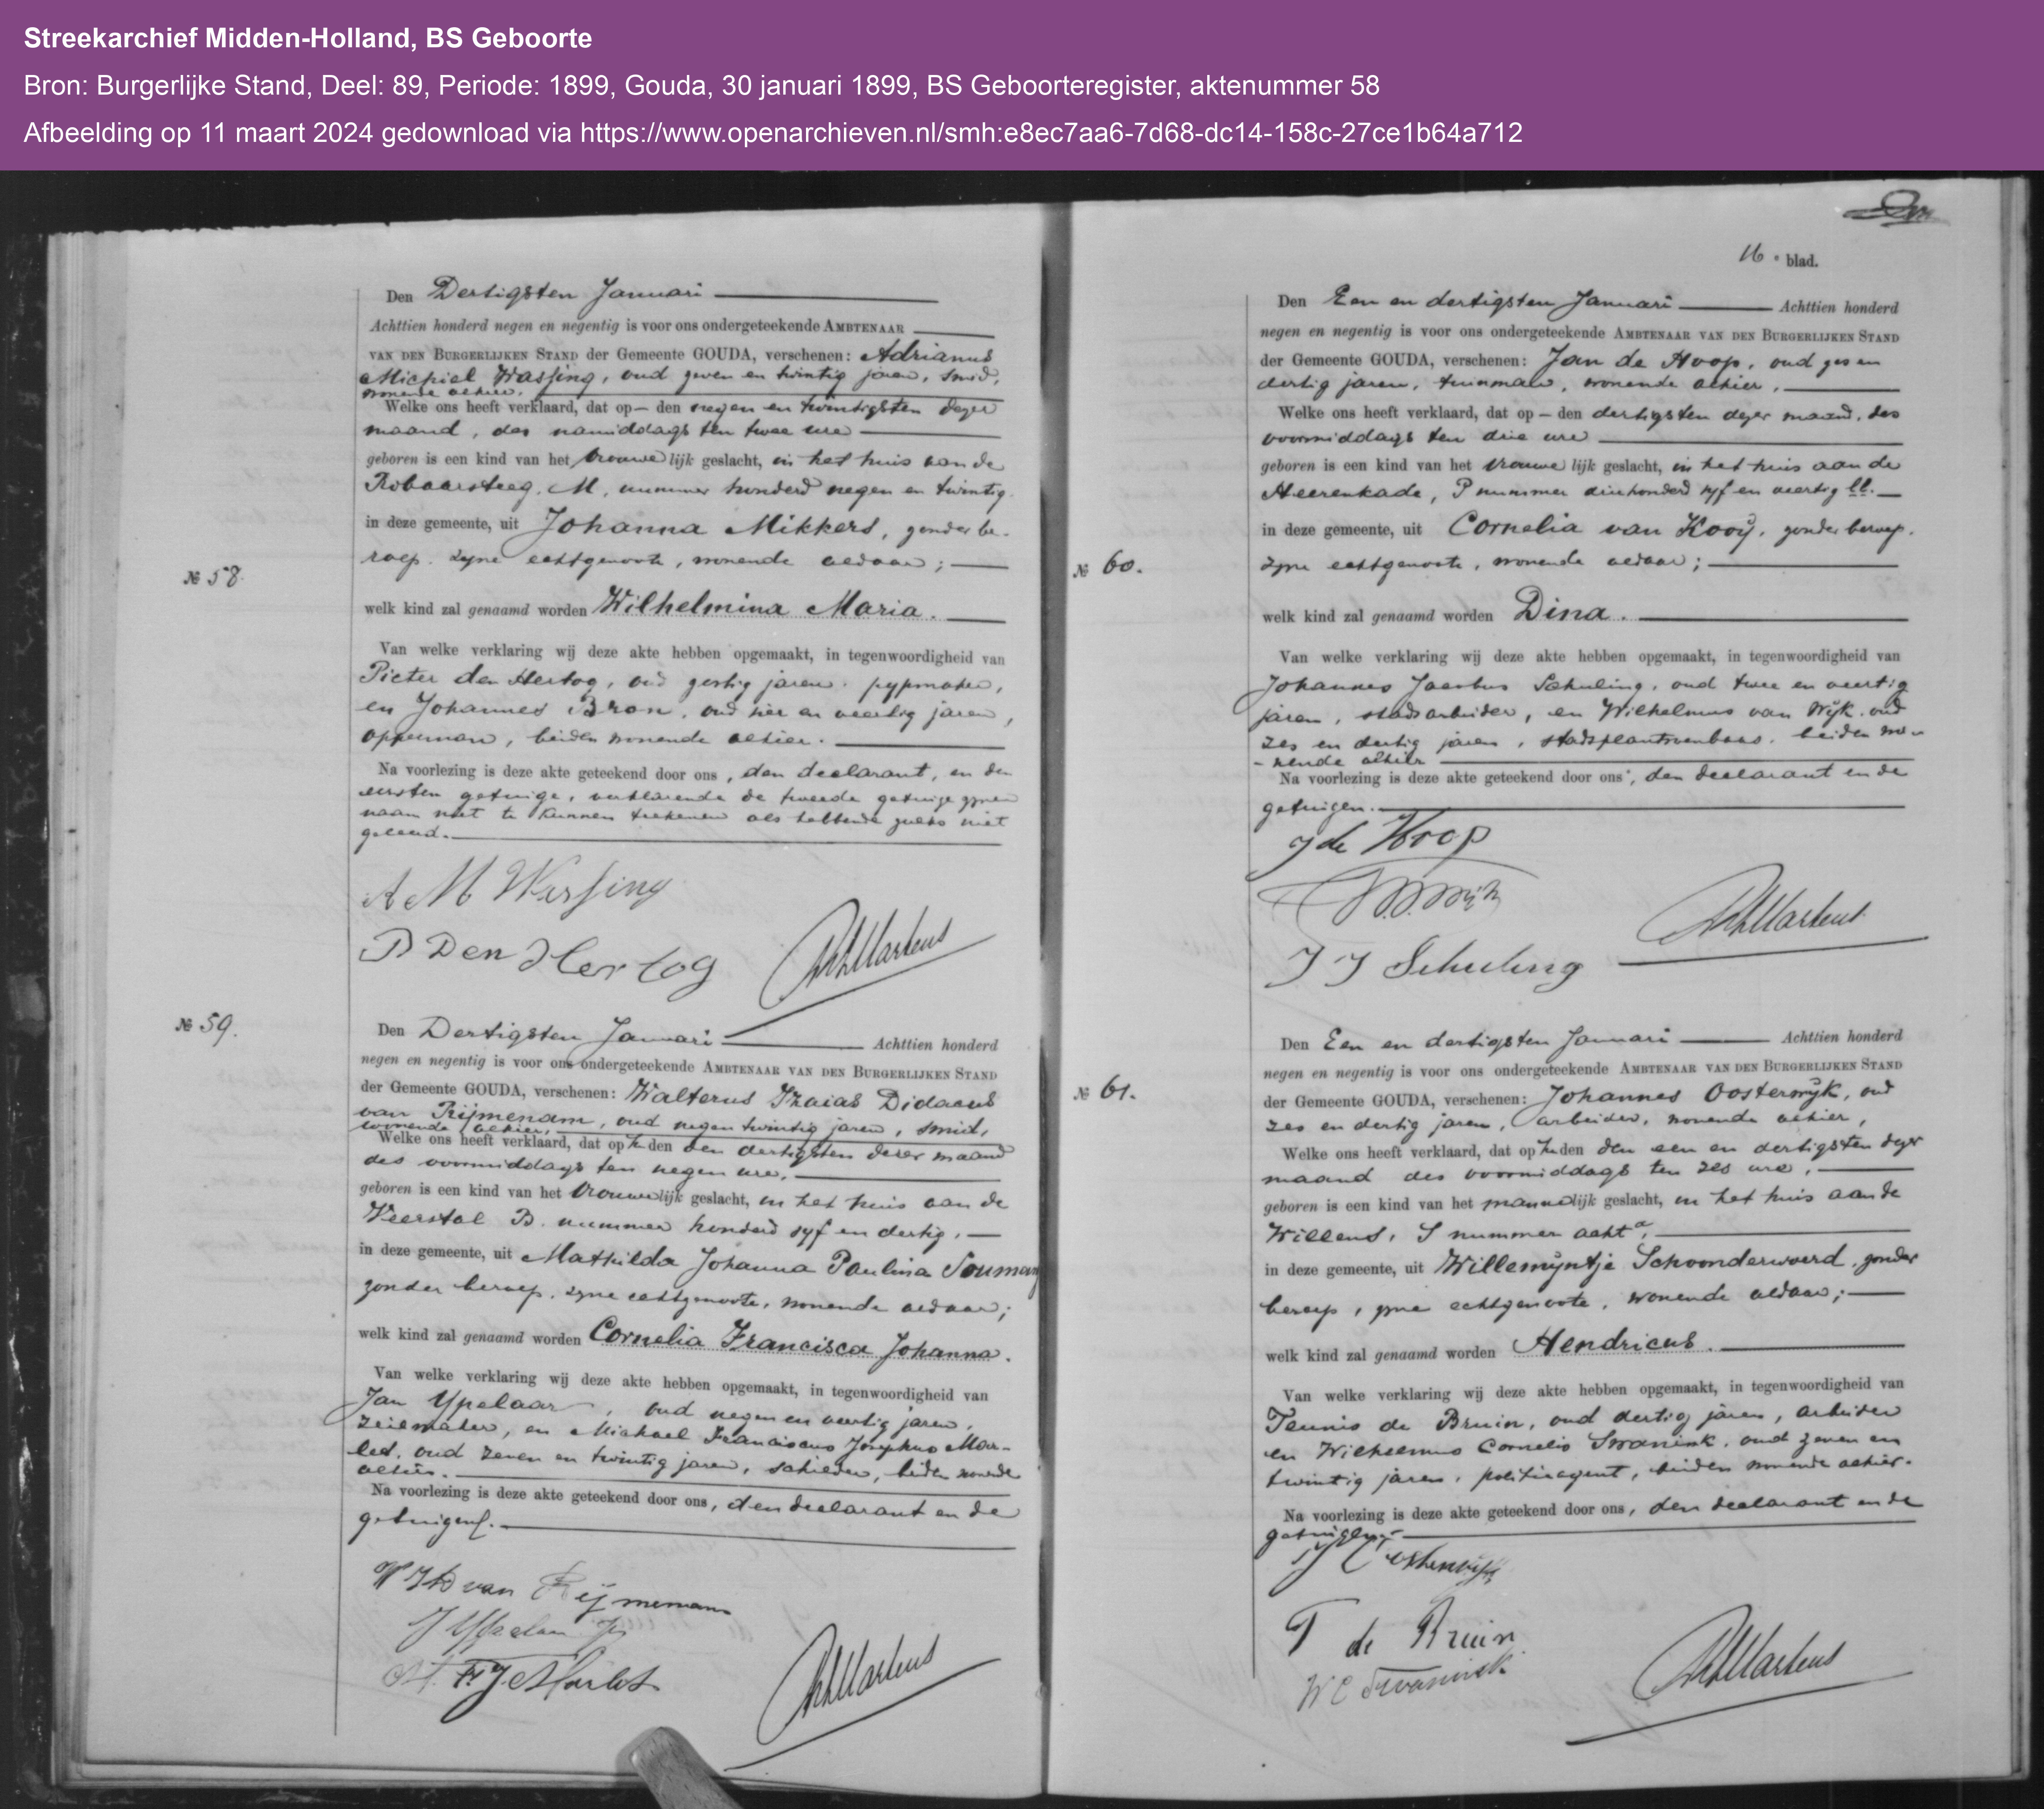 Streekarchief Midden-Holland, BS Geboorte
Bron: Burgerlijke Stand, Deel: 89, Periode: 1899, Gouda, 30 januari 1899, BS Geboorteregister, aktenummer 58
Afbeelding op 11 maart 2024 gedownload via https://www.openarchieven.nl/smh:e8ec7aa6-7d68-dc14-158c-27ce1b64a712
Nº 58
Den Dertigsten Januari
Achttien honderd negen en negentig is voor ons ondergeteekende AMBTENAAR
VAN DEN BURGERLIJKEN STAND der Gemeente GOUDA, verschenen: Adrianus
Michiel Wassing, oud zeven en twintig jaren, smid,
wonende alhier.
Welke ons heeft verklaard, dat op – den negen en twintigsten dezer
maand, des namiddags ten twee ure
geboren is een kind van het vrouwelijk geslacht, in het huis aan de
Robaarsteeg, M, nummer honderd negen en twintig.
in deze gemeente, uit Johanna Mikkers, zonder be-
roep. zyne echtgenoote, wonende aldaar;
welk kind zal genaamd worden Wilhelmina Maria.
Van welke verklaring wij deze akte hebben opgemaakt, in tegenwoordigheid van
Pieter den Hertog, oud zestig jaren. pypmaker,
en Johannes Bron, oud vier en veertig jaren,
opperman, beiden wonende alhier.
Na voorlezing is deze akte geteekend door ons, den declarant, en den
eersten getuige, verklarende de tweede getuige zynen
naam niet te kunnen teekenen als hebbende zulks niet
geleerd.
A M Wassing
P Den Hertog
Martens
Nº 59.
Den Dertigsten Januari Achttien honderd
negen en negentig is voor ons ondergeteekende AMBTENAAR VAN DEN BURGERLIJKEN STAND
der Gemeente GOUDA, verschenen: Walterus Isaias Didacus
van Rijmenam, oud negen twintig jaren, smid,
wonende alhier,
Welke ons heeft verklaard, dat op den den dertigsten dezer maand
des voormiddags ten negen ure,
geboren is een kind van het vrouwelijk geslacht, in het huis aan de
Veerstal B. nummer honderd vyf en dertig,
in deze gemeente, uit Mathilda Johanna Paulina Souman
zonder beroep, zyne echtgenoote, wonende aldaar;
welk kind zal genaamd worden Cornelia Francisca Johanna.
Van welke verklaring wij deze akte hebben opgemaakt, in tegenwoordigheid van
Jan Ypelaar, oud negen en veertig jaren,
zeilmaker, en Michael Franciscus Josephus Mar-
led, oud zeven en twintig jaren, schilder, beiden wonende
alhier.
Na voorlezing is deze akte geteekend door ons, den declarant en de
getuigen.
W I D van Rijmenam
J Ypelaar Jz
M. F. J. Marlet
Martens
16e blad.
Nº 60.
Den Een en dertigsten Januari Achttien honderd
negen en negentig is voor ons ondergeteekende AMBTENAAR VAN DEN BURGERLIJKEN STAND
der Gemeente GOUDA, verschenen: Jan de Hoop, oud zes en
dertig jaren, tuinman, wonende alhier,
Welke ons heeft verklaard, dat op – den dertigsten dezer maand, des
voormiddags ten drie ure
geboren is een kind van het vrouwelijk geslacht, in het huis aan de
Heerenkade, P nummer driehonderd vyf en veertig ll.
in deze gemeente, uit Cornelia van Kooy, zonder beroep.
zyne echtgenoote, wonende aldaar;
welk kind zal genaamd worden Dina.
Van welke verklaring wij deze akte hebben opgemaakt, in tegenwoordigheid van
Johannes Jacobus Schuling, oud twee en veertig
jaren, stadsarbeider, en Wilhelmus van Wijk. oud
zes en dertig jaren, stadsplantsoenbaas. beiden wo-
-nende alhier
Na voorlezing is deze akte geteekend door ons, den declarant en de
getuigen.
J de Hoop
J J Schuling
Martens
Nº 61.
Den Een en dertigsten Januari Achttien honderd
negen en negentig is voor ons ondergeteekende AMBTENAAR VAN DEN BURGERLIJKEN STAND
der Gemeente GOUDA, verschenen: Johannes Oosterwyk, oud
zes en dertig jaren, arbeider, wonende alhier,
Welke ons heeft verklaard, dat op den den een en dertigsten dezer
maand des voormiddags ten zes ure,
geboren is een kind van het mannelijk geslacht, in het huis aan de
Willens, S nummer acht a,
in deze gemeente, uit Willemyntje Schoonderwoerd, zonder
beroep, zyne echtgenoote, wonende aldaar;
welk kind zal genaamd worden Hendricus.
Van welke verklaring wij deze akte hebben opgemaakt, in tegenwoordigheid van
Teunis de Bruin, oud dertig jaren, arbeider
en Wilhelmus Cornelis Swanink, oud zeven en
twintig jaren, politieagent, beiden wonende alhier.
Na voorlezing is deze akte geteekend door ons, den declarant en de
getuigen.
J Oosterwijk
T de Bruin
W C Swanink
Martens